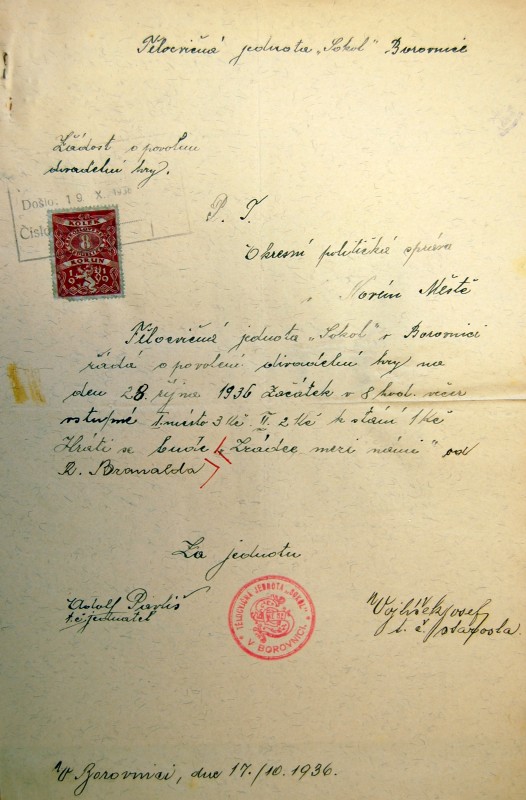 Tělocvičná jednota „Sokol" Borovnice
Žádost o povolení
divadelní hry.
Došlo: 19. X. 1936
Číslo
KOLEK
8
KORUN
P. T.
Okresní politická správa
v Novém Městě
Tělocvičná jednota „Sokol" v Borovnici
žádá o povolení divadelní hry na
den 28. října 1936 Začátek v 8 hod. večer
vstupné I. místo 3 Kč II. 2 Kč k stání 1 Kč
Hráti se bude „Zrádce mezi námi" od
R. Branalda
Za jednotu
Adolf Pavliš
t. č. jednatel
TĚLOCVIČNÁ JEDNOTA „SOKOL"
V BOROVNICI.
Josef
t. č. starosta
V Borovnici, dne 17./10. 1936.